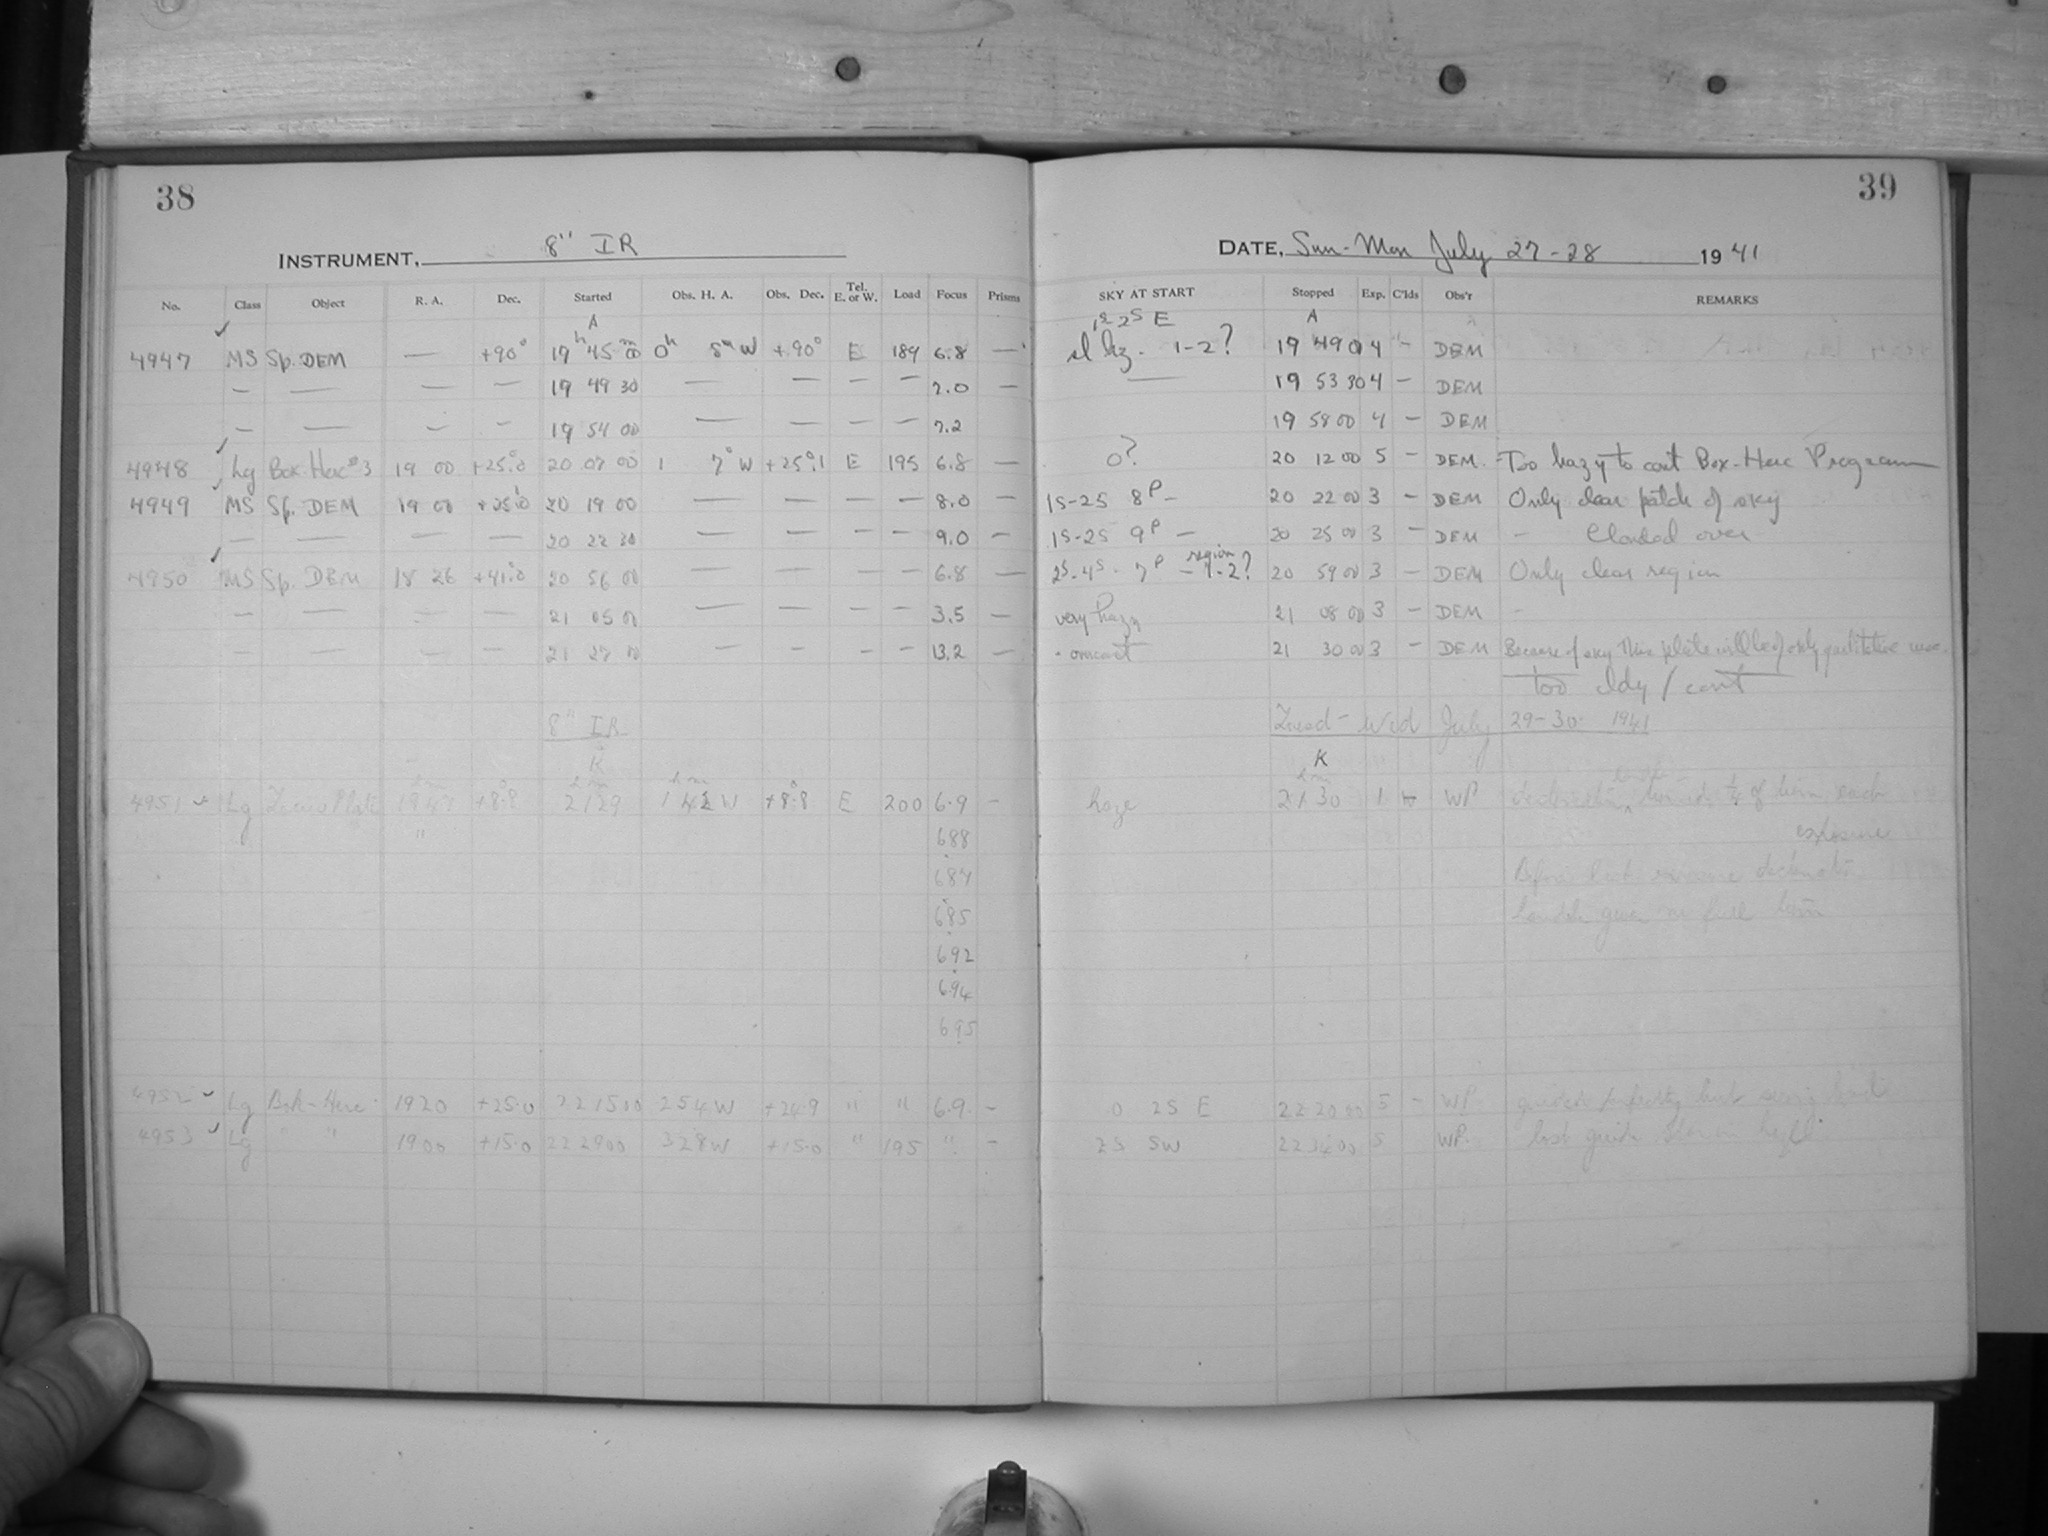 38
INSTRUMENT, 8" IR
No. Class Object R. A. Dec. Started Obs. H. A. Obs. Dec. Tel. E. or W. Load Focus Prisms
A
4947 MS Sp. DEM — +90° 19h 45m 00 0h 5m W +90° E 189 6.8 —
— — — — 19 49 30 — — — — 7.0 —
— — — — 19 54 00 — — — — 7.2
4948 Lg Bok-Herc #3 19 00 +25.0 20 07 00 1 7 W +25.1 E 195 6.8 —
4949 MS Sp. DEM 19 00 +25.0 20 19 00 — — — — 8.0 —
— — — — 20 22 30 — — — — 9.0 —
4950 MS Sp. DEM 18 26 +41.0 20 56 00 — — — — 6.8 —
— — — — 21 05 00 — — — — 3.5 —
— — — — 21 27 00 — — — — 13.2 —
8" IR
K
4951 Lg Plate 1947 +8.8 2129 1 42 W +8.8 E 200 6.9 —
" 688
687
685
692
694
695
4952 Lg Bok-Herc 1920 +25.0 22 15 00 2 54 W +24.9 " " 6.9 —
4953 Lg " " 1900 +15.0 22 29 00 3 28 W +15.0 " 195 " —
39
DATE, Sun-Mon July 27-28 1941
SKY AT START Stopped Exp. C'lds Obs'r REMARKS
1S 2S E A
sl hz. 1-2? 19 49 00 4 — DEM
— 19 53 30 4 — DEM
19 58 00 4 — DEM
0? 20 12 00 5 — DEM. Too hazy to cont Bok-Herc Program
1S-2S 8P — 20 22 00 3 — DEM Only clear patch of sky
1S-2S 9P — 20 25 00 3 — DEM — Clouded over
region
2S-4S 7P — 1-2? 20 59 00 3 — DEM Only clear region
very hazy 21 08 00 3 — DEM —
overcast 21 30 00 3 — DEM Because of sky this plate will be of only qualitative use.
too cldy / cont
Tuesd-Wed July 29-30 1941
K
haze 21 30 1 — WP declination towards ¼ of turn each
exposure
Before last exposure declination
handle given a full turn
0 2S E 22 20 00 5 — WP guided perfectly but
2S SW 22 34 00 5 WP. lost guide star in